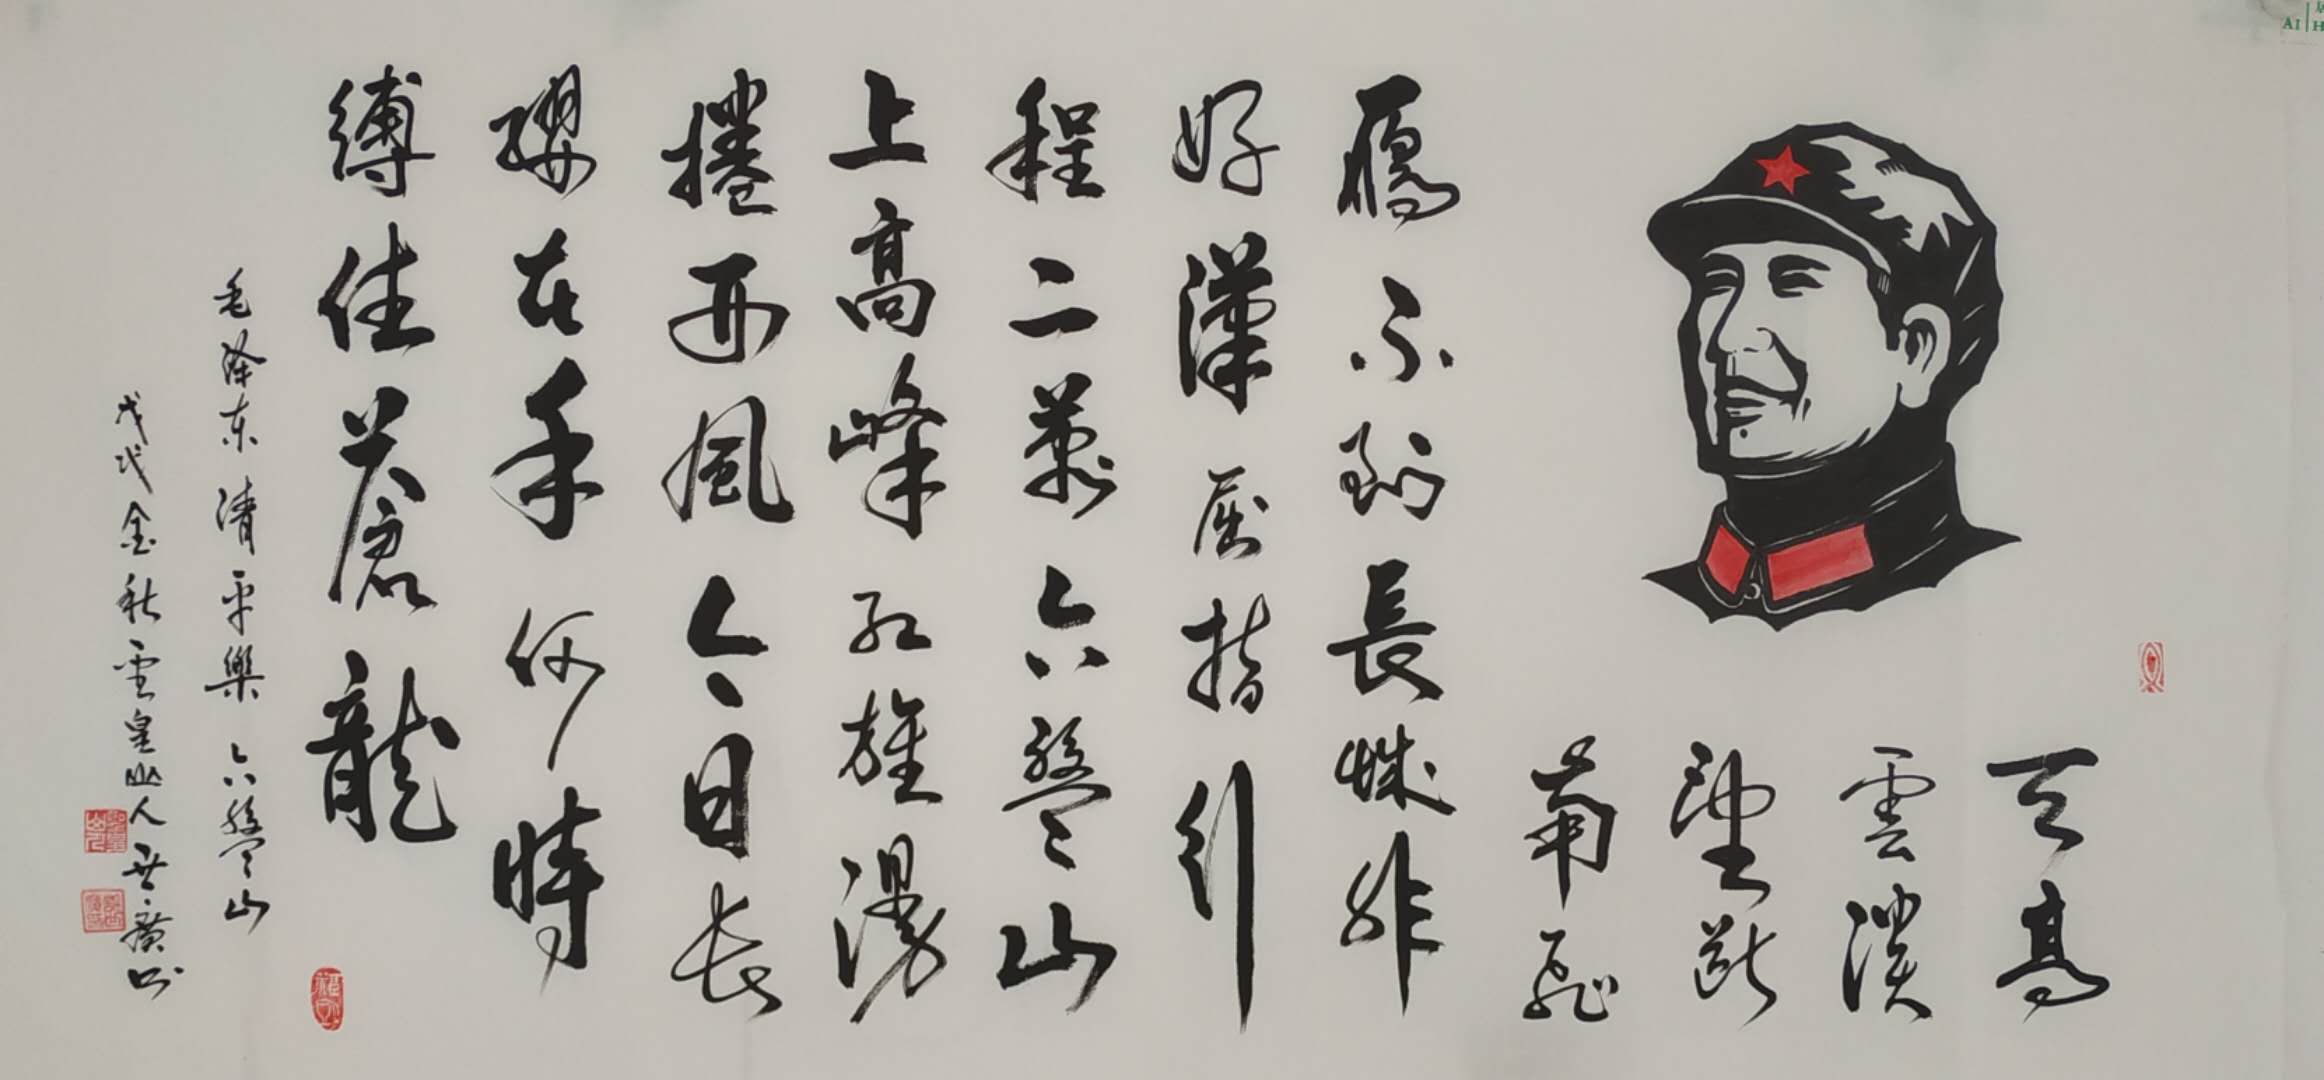 天高
雲淡
望斷
南飛
雁不到長城非
好漢屈指行
程二萬六盤山
上高峰紅旗漫
捲西風今日長
纓在手何時
縛住蒼龍
毛泽东清平樂六盤山
戊戌金秋雲皇山人世廣书
AI